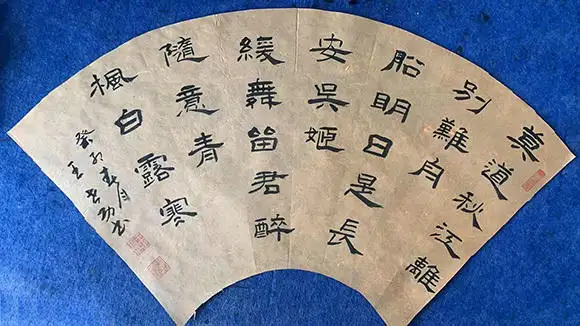 莫道秋江離
別難舟
船明日是長
安吳姬
緩舞留君醉
隨意青
楓白露寒
癸卯春月
王